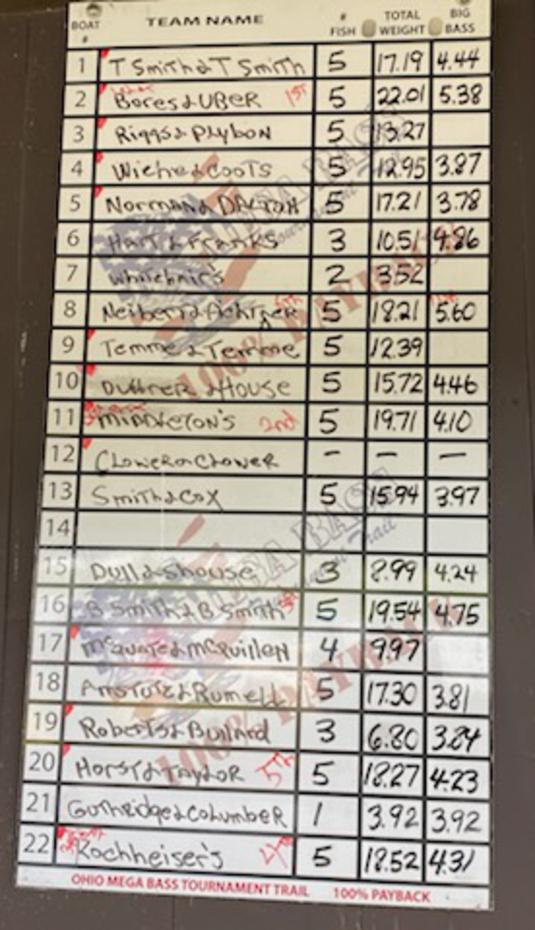 BOAT # TEAM NAME # FISH TOTAL WEIGHT BIG BASS
1 T Smith & T Smith 5 17.19 4.44
2 Bores & UBER 1st 5 22.01 5.38
3 Riggs & Plybon 5 13.27
4 Wiehe & Coots 5 12.95 3.87
5 Norman & Dalton 5 17.21 3.78
6 Hart & Franks 3 10.51 4.86
7 Whitehair's 2 3.52
8 Neiberd & 5 18.21 5.60
9 Temme & Temme 5 12.39
10 & House 5 15.72 4.46
11 MIDDLETON'S 2nd 5 19.71 4.10
12 Clower & Clower - - -
13 Smith & Cox 5 15.94 3.97
14
15 Dull & Shouse 3 8.99 4.24
16 B Smith & B Smith 5 19.54 4.75
17 & McQuillen 4 9.97
18 Amstutz & Rumell 5 17.30 3.81
19 Roberts & Bullard 3 6.80 3.84
20 Horst & Taylor 5th 5 18.27 4.23
21 Guthridge & Columber 1 3.92 3.92
22 Kochheiser's 4th 5 18.52 4.31
OHIO MEGA BASS TOURNAMENT TRAIL 100% PAYBACK